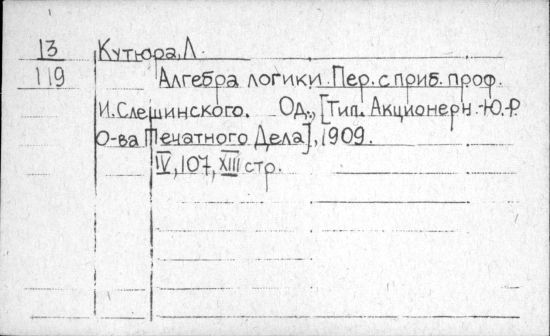 13 Кутюра, Л.
119 Алгебра логики. Пер. с приб. проф.
И. Слешинского. Од., [Тип. Акционерн. Ю.-Р.
О-ва Печатного Дела], 1909.
IV, 107, XIII стр.